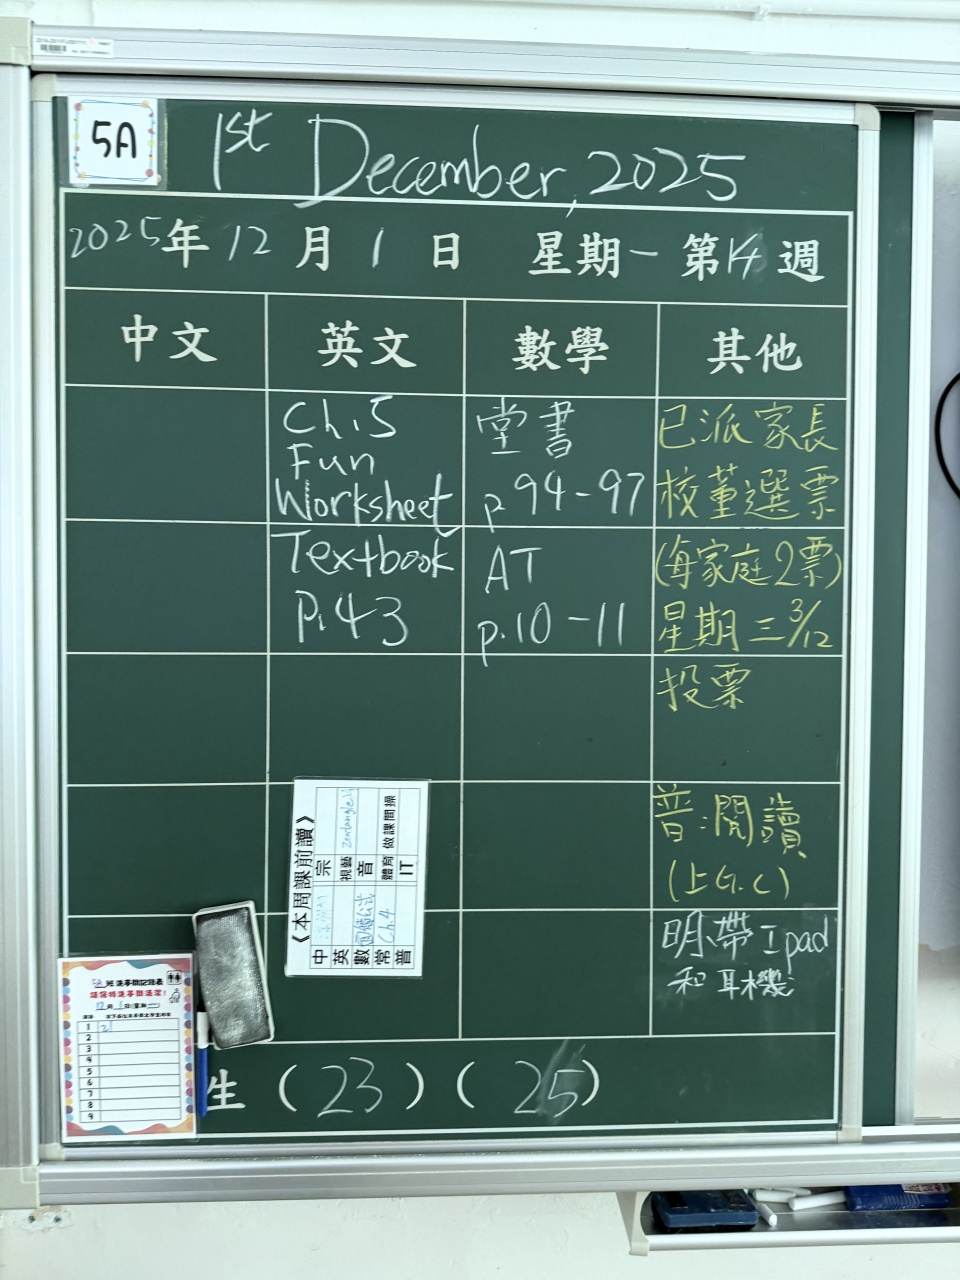 5A
1st December, 2025
2025年12月1日 星期一 第14週
中文 英文 數學 其他
Ch.5
Fun
Worksheet
Textbook
P.43
堂書
p.94-97
AT
p.10-11
已派家長
校董選票
(每家庭2票)
星期三 3/12
投票
普:閱讀
(上G.C)
明、帶Ipad
和耳機
《本周課前讀》
中 宗
英 視藝 zentangle
數 音
常 Ch.4 體育 做課間操
普 IT
12月1日(星期一)
1 21
2
3
4
5
6
7
8
9
生 (23) (25)